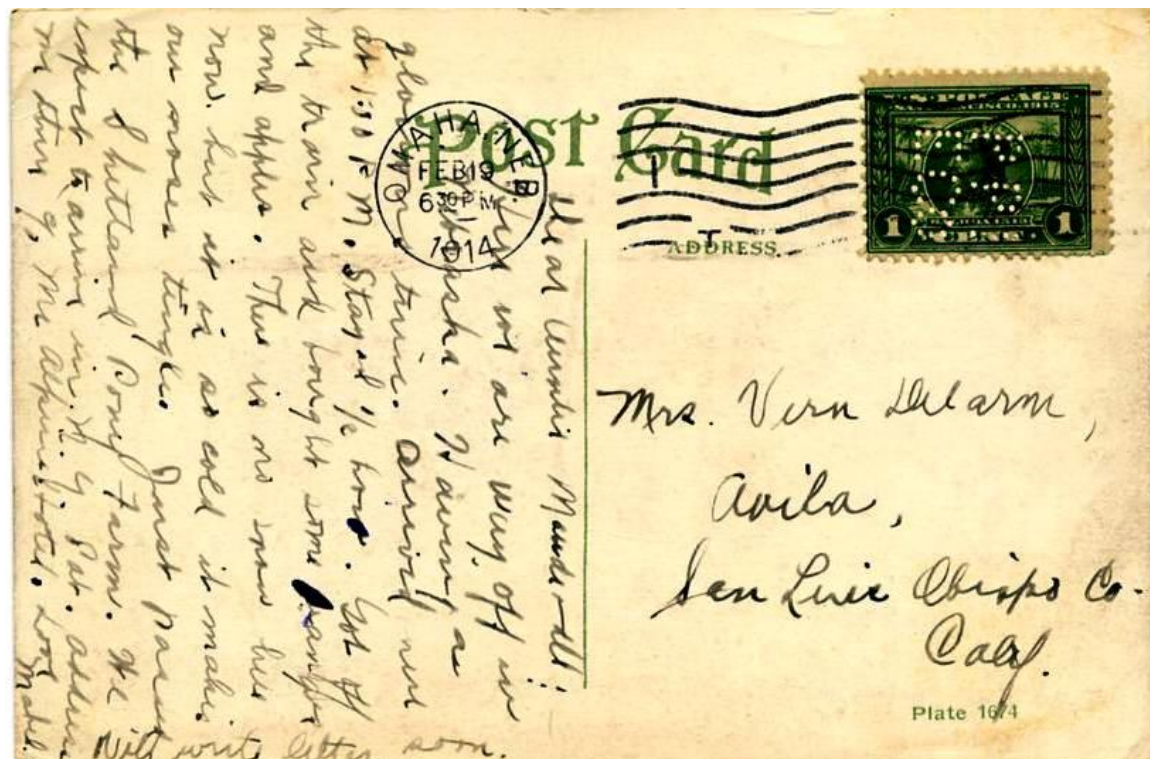 Post Card
OMAHA, NEB.
FEB 19
6 30 P M
1914
U.S. POSTAGE
1 CENT 1
ADDRESS.
Mrs. Vern Delarm,
Avila,
San Luis Obispo Co.
Calif.
Plate 1674
Dear Maude + all:
Well we are way off in
Nebraska. Having a
time. Arrived here
at 1:30 P.M. Stayed 1/2 hour. Got off
the train and bought some oranges
and apples. There is no snow here
now. but it is so cold it makes
our noses tingle. Just passed
the Shetland Pony Farm. We
expect to arrive in N.Y. Sat. Address
me Mc Alpin Hotel. Love
Mabel.
Will write letter soon.